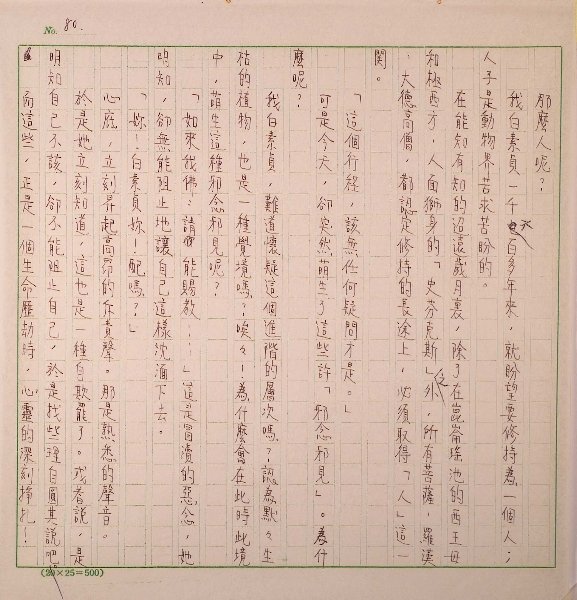 No. 80.
那麼人呢?
我白素貞一千六百多年來，就盼望要修持為一個人；
人子是動物界苦求苦盼的。
在能知有知的迢漫歲月裏，除了在崑崙瑤池的西王母
和極西方人面獅身的「史芬克斯」之外，所有菩薩，羅漢
，大德高僧，都認定修持的長途上，必須取得「人」這一
関。
「這個行程，該無任何疑問才是。」
可是今天，卻突然萌生了這些許「邪念邪見」。為什
麼呢?
我白素貞，難道懷疑這個進階的層次嗎?認為默々生
枯的植物，也是一種覺境嗎?唉々!為什麼會在此時此境
中，萌生這種邪念邪見呢?
「如來我佛?請能賜教…」這是冒瀆的惡念，她
明知，卻無能阻止地讓自己這樣沈湎下去。
「妳!白素貞妳!配嗎?」
心底，立刻昇起高昂的斥責聲。那是熟悉的聲音。
於是她立刻知道，這也是一種自欺罷了。或者說，是
明知自己不該，卻不能阻止自己，於是找些理自圓其說吧
而這些，正是一個生命歷劫時，心靈的深刻掙扎!
(20×25=500)